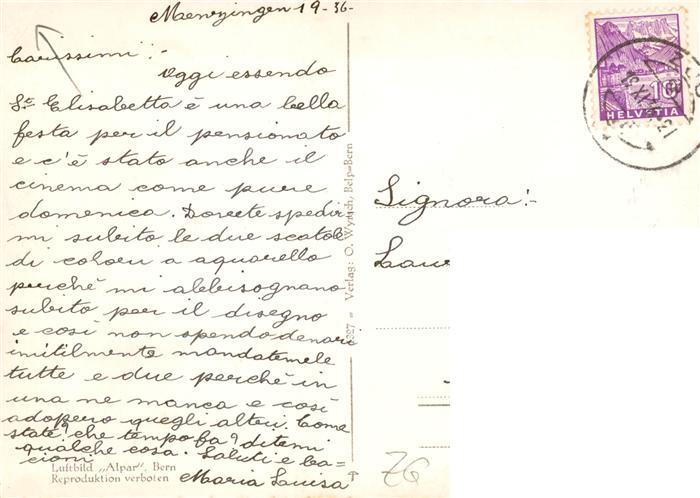 Menzingen 19-36-
Carissimi:-
Oggi essendo
Sta Elisabetta è una bella
festa per il pensionato
e c'è stato anche il
cinema come pure
domenica. Dovete spedir
mi subito le due scatole
di colori a aquarello
perchè mi abbisognano
subito per il disegno
e così non spendo denari
inutilmente mandatemele
tutte e due perchè in
una ne manca e così
adopero quegli altri. Come
state? che tempo fa? ditemi
qualche cosa. Saluti e ba=
cioni
Maria Luisa
Luftbild „Alpar", Bern
Reproduktion verboten
Verlag: O. Wyrsch, Belp-Bern
Signora:-
ZG
10
HELVETIA